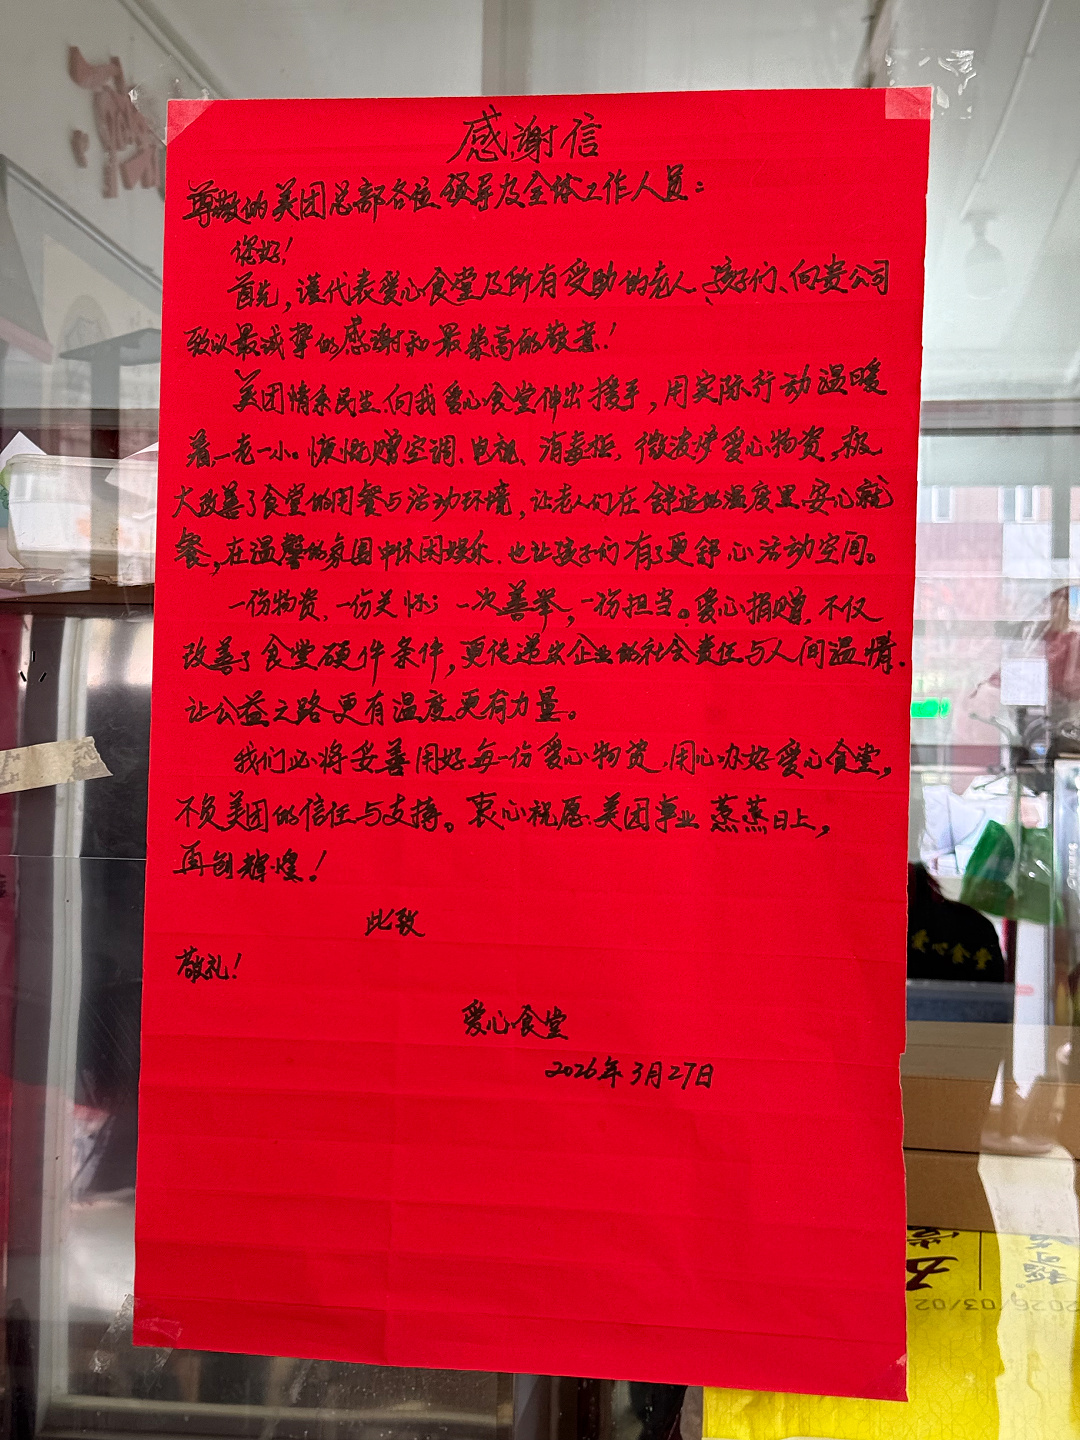 感谢信
尊敬的美团总部各位领导及全体工作人员：
您好！
首先，谨代表爱心食堂及所有受助的老人、孩子们、向贵公司
致以最诚挚的感谢和最崇高的敬意！
美团情系民生，向我爱心食堂伸出援手，用实际行动温暖
着一老一小。慷慨赠空调、电视、消毒柜、微波炉爱心物资，极
大改善了食堂的用餐与活动环境，让老人们在舒适的温度里安心就
餐，在温馨的氛围中休闲娱乐，也让孩子们有了更舒心活动空间。
一份物资，一份关怀；一次善举，一份担当。爱心捐赠，不仅
改善了食堂硬件条件，更传递出企业的社会责任与人间温情．
让公益之路更有温度，更有力量。
我们必将妥善用好每一份爱心物资，用心办好爱心食堂，
不负美团的信任与支持。衷心祝愿美团事业蒸蒸日上，
再创辉煌！
此致
敬礼！
爱心食堂
2026年3月27日
爱心食堂
2026/03/02